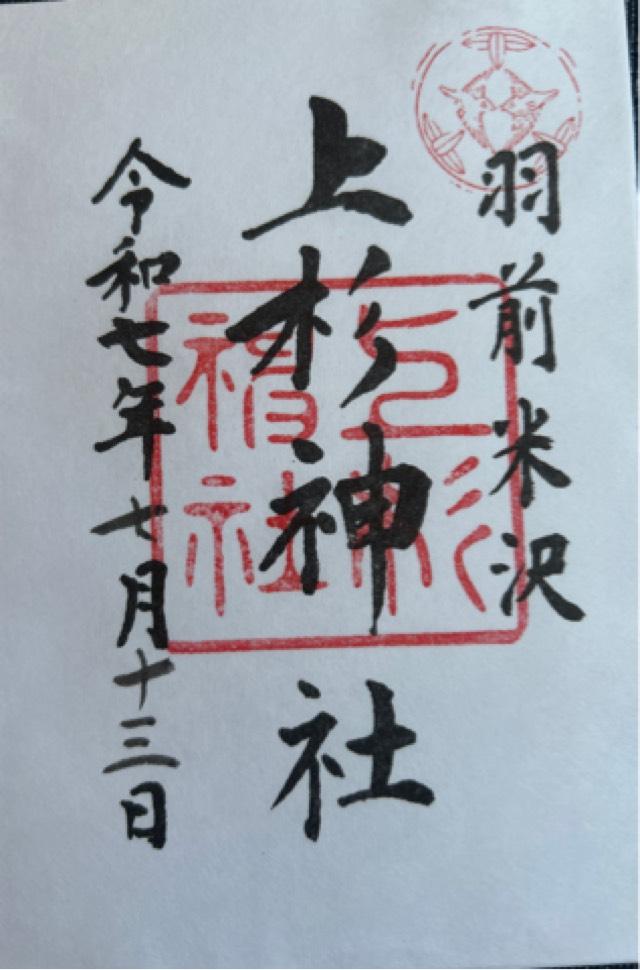 羽前米沢
上杉神社
令和七年七月十三日
上杉神社